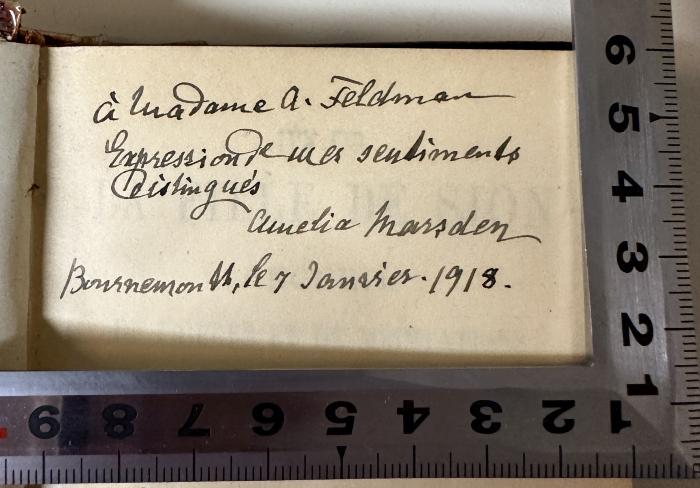 à Madame A. Feldman
Expression de mes sentiments
distingués
Amelia Marsden
Bournemouth, le 7 Janvier. 1918.
6
5
4
3
2
1
9 8 7 6 5 4 3 2 1